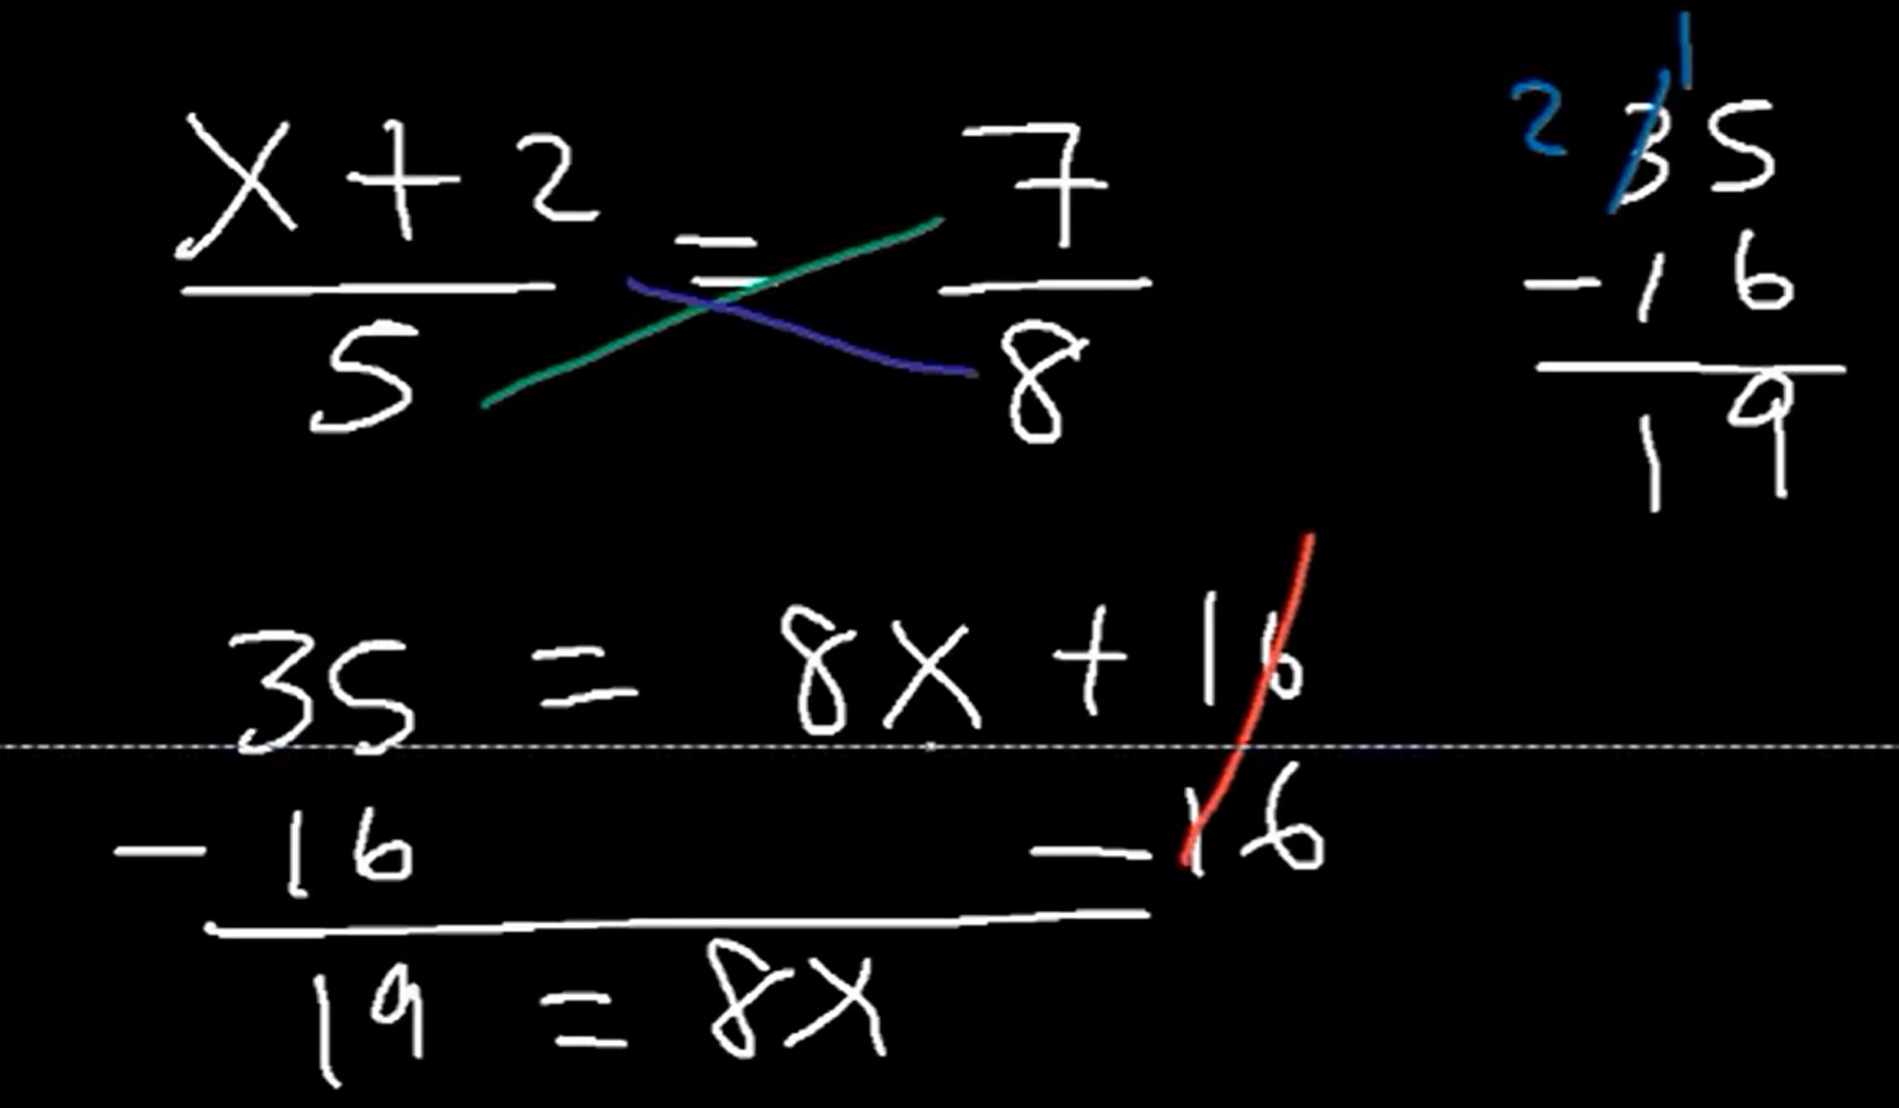 x + 2 = 7
5 8
35 = 8x + 16
- 16 - 16
19 = 8x
1
2 35
- 16
19